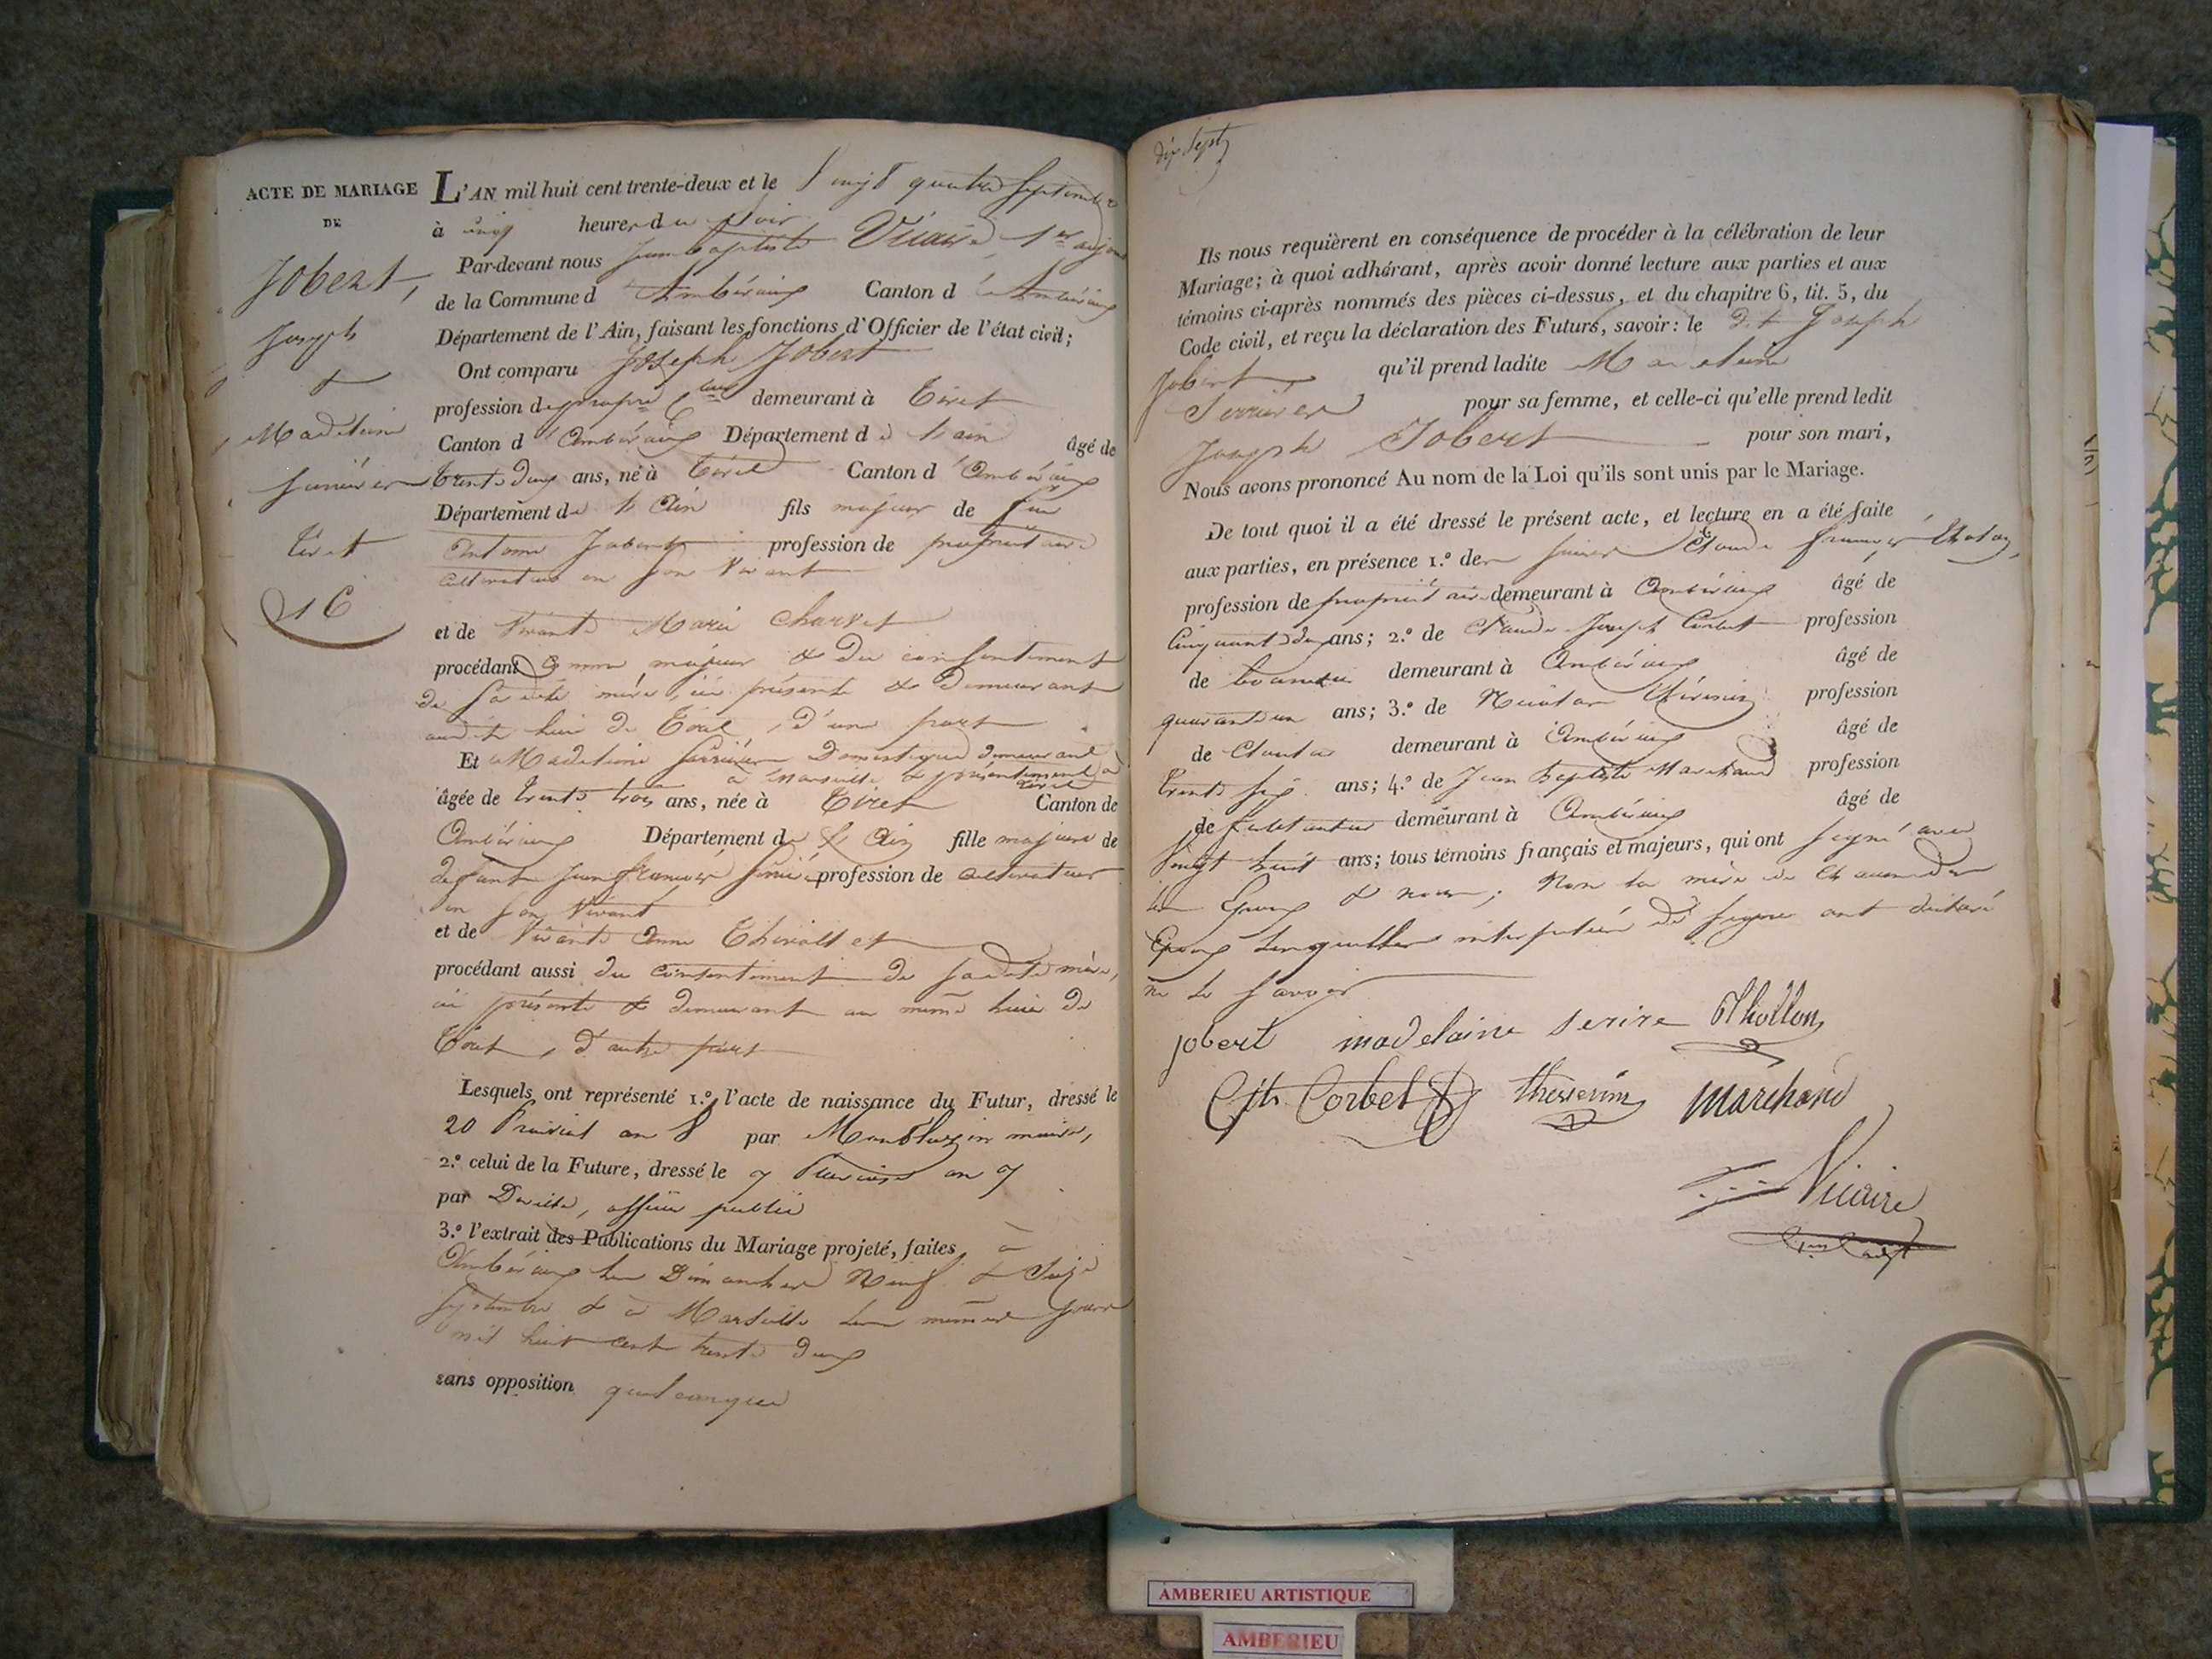 ACTE DE MARIAGE
DE
Jobert,
Joseph
&
Madeleine
Serrières
Tiret
16
L'AN mil huit cent trente-deux et le vingt quatre Septembre
à cinq heures du Soir
Par-devant nous Jean Baptiste Vicaire 1er adjoint
de la Commune d'Ambérieux Canton d'Ambérieux
Département de l'Ain, faisant les fonctions d'Officier de l'état civil;
Ont comparu Joseph Jobert
profession de propre. demeurant à Tiret
Canton d'Ambérieux Département de l'ain âgé de
trente deux ans, né à Tiret Canton d'Ambérieux
Département de l'Ain fils majeur de feu
Antoine Jobert profession de propriétaire
cultivateur en son vivant
et de vivante Marie Charvet
procédant comme majeur & du consentement
de sa dite mère, ici présente & demeurant
audit lieu de Tiret, d'une part
Et Madeleine Serrières Domestique demeurant
à Marseille & présentement à
Tiret
âgée de trente trois ans, née à Tiret Canton de
Ambérieux Département de l'Ain fille majeure de
défunt Jean François profession de cultivateur
en son vivant
et de vivante Anne Thivollet
procédant aussi du consentement de sa dite mère,
ici présente & demeurant au même lieu de
Tiret, d'autre part
Lesquels ont représenté 1.º l'acte de naissance du Futur, dressé le
20 Prairial an 8 par maire,
2.º celui de la Future, dressé le 7 an 7
par officier public
3.º l'extrait des Publications du Mariage projeté, faites à
Ambérieux les Dimanches Neuf & Seize
Septembre & à Marseille les mêmes jours
mil huit cent trente deux
sans opposition quelconque
dix Sept
Ils nous requièrent en conséquence de procéder à la célébration de leur
Mariage; à quoi adhérant, après avoir donné lecture aux parties et aux
témoins ci-après nommés des pièces ci-dessus, et du chapitre 6, tit. 5, du
Code civil, et reçu la déclaration des Futurs, savoir: le dit Joseph
Jobert qu'il prend ladite Madeleine
Serrières pour sa femme, et celle-ci qu'elle prend ledit
Joseph Jobert pour son mari,
Nous avons prononcé Au nom de la Loi qu'ils sont unis par le Mariage.
De tout quoi il a été dressé le présent acte, et lecture en a été faite
aux parties, en présence 1.º des sieurs Claude François Tholon,
profession de propriétaire demeurant à Ambérieux âgé de
Cinquante deux ans; 2.º de Claude Joseph Corbet profession
de demeurant à Ambérieux âgé de
quarante un ans; 3.º de Thévenin profession
de demeurant à Ambérieux âgé de
trente six ans; 4.º de Jean Baptiste Marchand profession
de demeurant à Ambérieux âgé de
vingt huit ans; tous témoins français et majeurs, qui ont signé avec
les Epoux & nous; Non la mère de chacun des
Epoux lesquelles interpelées de signer ont déclaré
ne le savoir
jobert madelaine serire Thollon
Cjh Corbet thevenin marchand
Vicaire